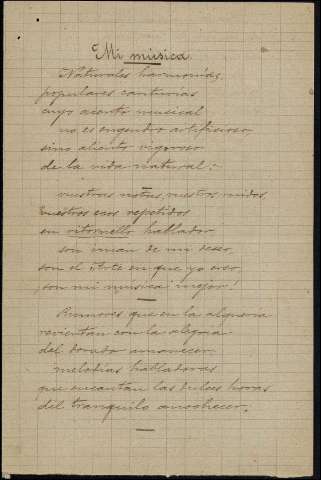 Mi música.
Naturales harmonías,
populares canturias
cuyo acento musical
no es engendro artificioso
sino aliento vigoroso
de la vida natural:
vuestras notas, vuestros ruidos
vuestros ecos repetidos
en ritornello hablador
son iman de mi deseo,
son el Arte en que yo creo,
¡son mi música mejor!
Rumores que en la alquería
revientan con la alegria
del dorado amanecer;
melodias habladoras
que encantan las dulces horas
del tranquilo anochecer.